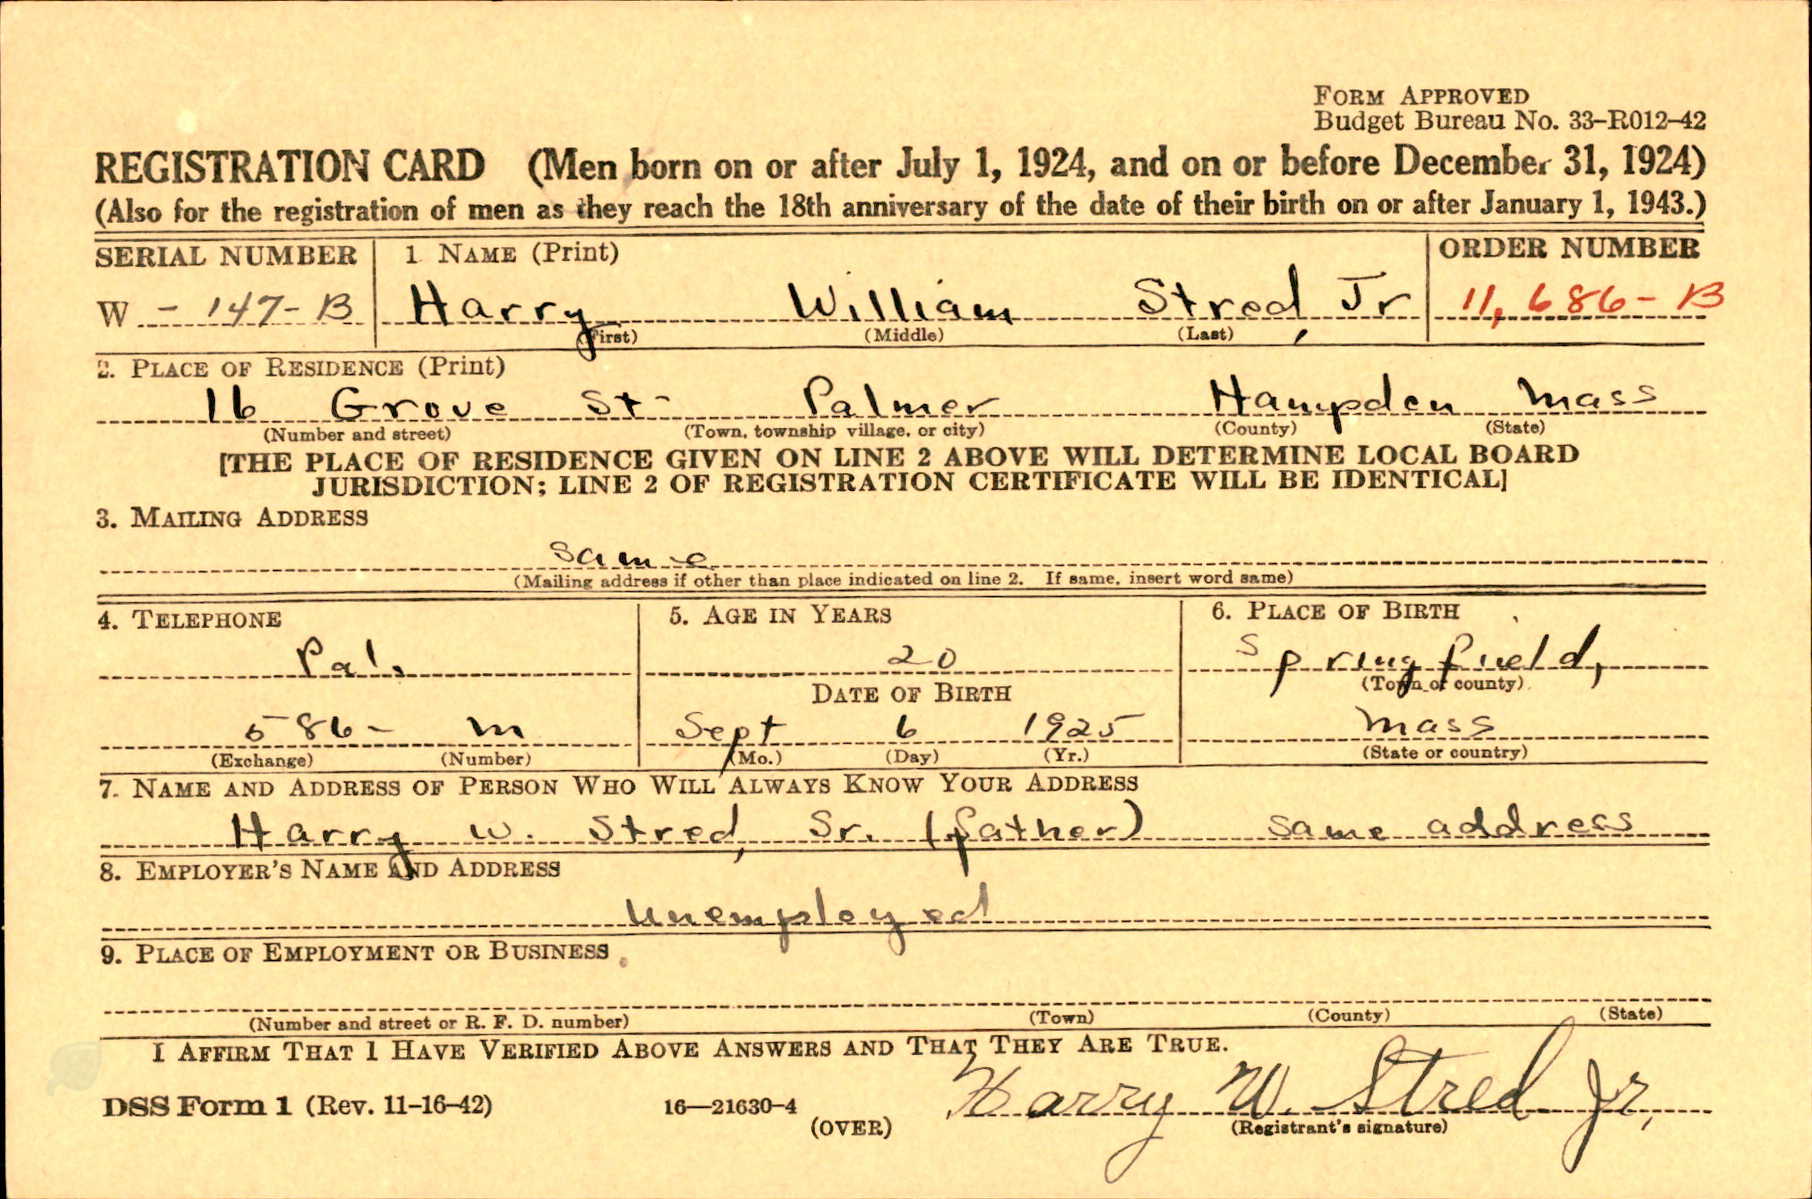 FORM APPROVED
Budget Bureau No. 33-R012-42
REGISTRATION CARD (Men born on or after July 1, 1924, and on or before December 31, 1924)
(Also for the registration of men as they reach the 18th anniversary of the date of their birth on or after January 1, 1943.)
SERIAL NUMBER 1 NAME (Print) ORDER NUMBER
W - 147-B Harry William Stred, Jr 11,686-B
(First) (Middle) (Last)
2. PLACE OF RESIDENCE (Print)
16 Grove St- Palmer Hampden Mass
(Number and street) (Town, township village, or city) (County) (State)
[THE PLACE OF RESIDENCE GIVEN ON LINE 2 ABOVE WILL DETERMINE LOCAL BOARD
JURISDICTION; LINE 2 OF REGISTRATION CERTIFICATE WILL BE IDENTICAL]
3. MAILING ADDRESS
Same
(Mailing address if other than place indicated on line 2. If same, insert word same)
4. TELEPHONE 5. AGE IN YEARS 6. PLACE OF BIRTH
Pal. 20 Springfield,
(Town or county)
DATE OF BIRTH
586- M Sept 6 1925 Mass
(Exchange) (Number) (Mo.) (Day) (Yr.) (State or country)
7. NAME AND ADDRESS OF PERSON WHO WILL ALWAYS KNOW YOUR ADDRESS
Harry W. Stred, Sr. (father) same address
8. EMPLOYER'S NAME AND ADDRESS
Unemployed
9. PLACE OF EMPLOYMENT OR BUSINESS
(Number and street or R. F. D. number) (Town) (County) (State)
I AFFIRM THAT I HAVE VERIFIED ABOVE ANSWERS AND THAT THEY ARE TRUE.
DSS Form 1 (Rev. 11-16-42) 16—21630-4 (OVER) Harry W. Stred Jr.
(Registrant's signature)